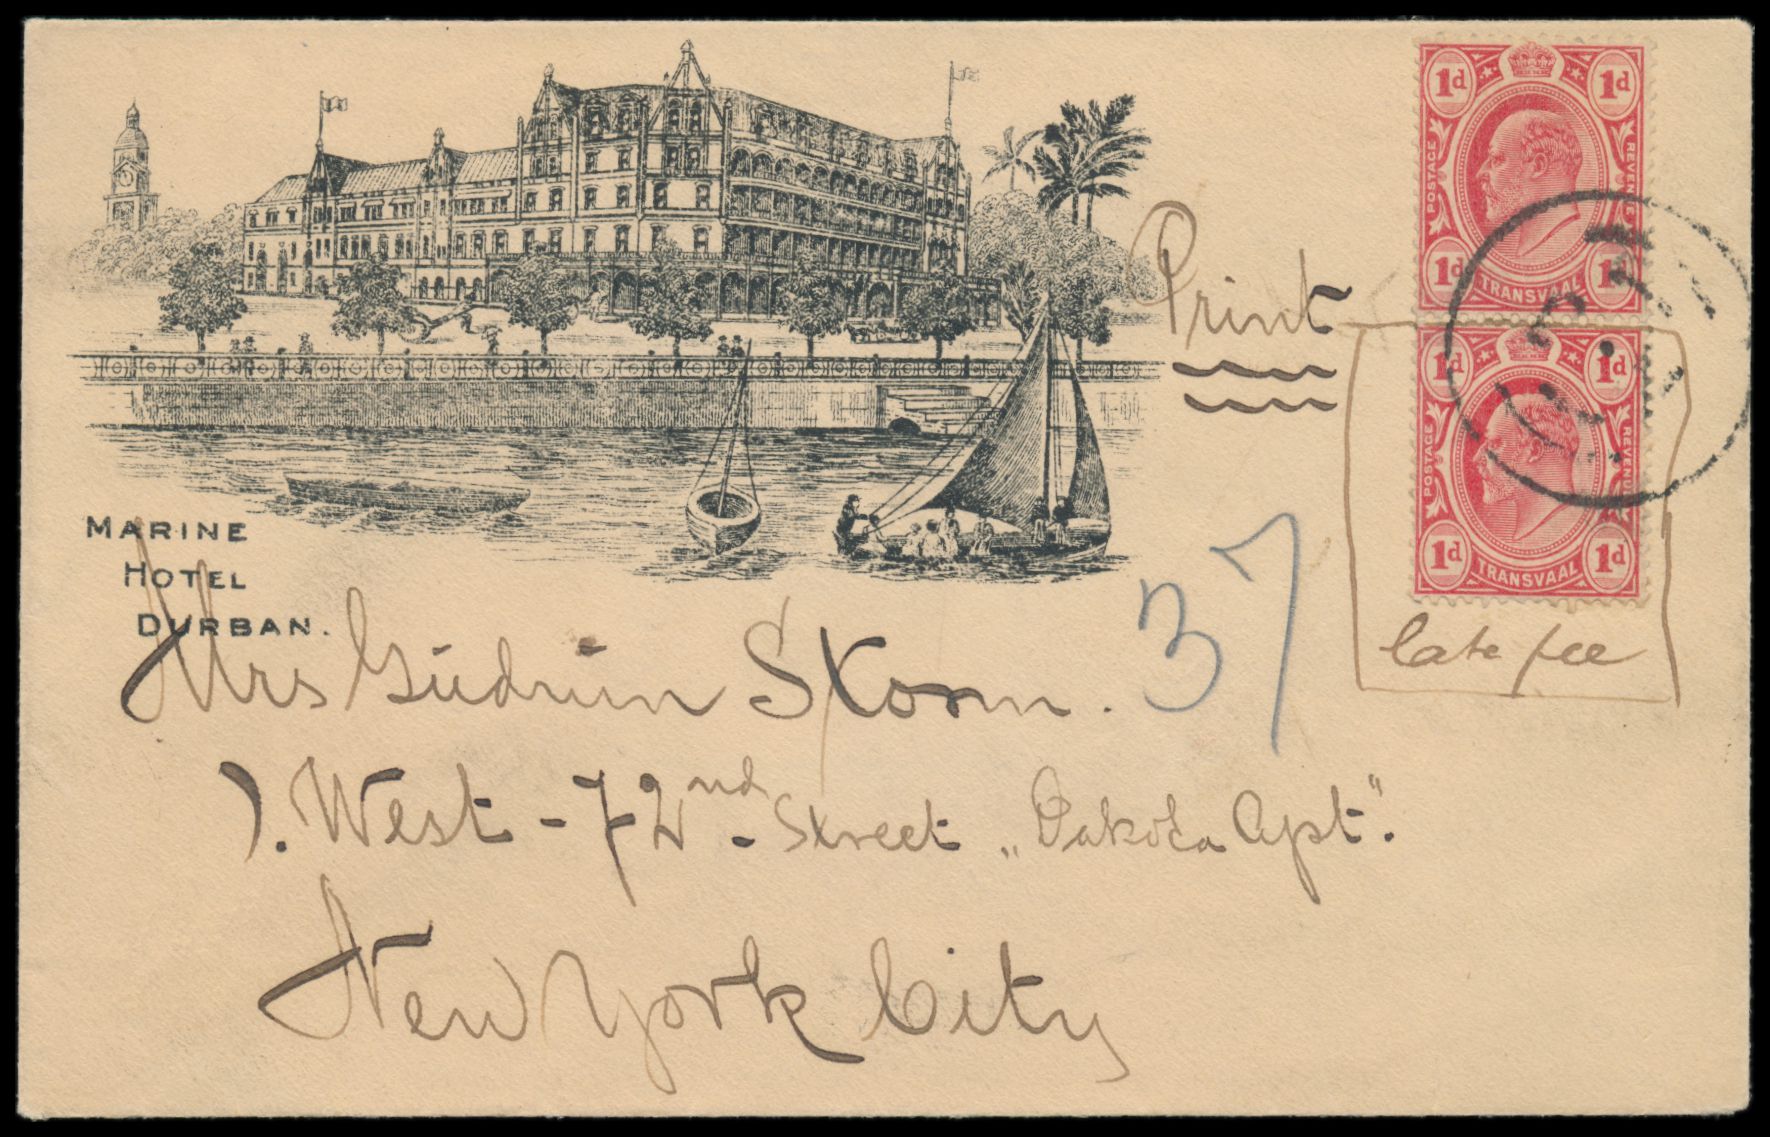 1d 1d
POSTAGE REVENUE
1d 1d
TRANSVAAL
Print
1d 1d
POSTAGE REVENUE
1d 1d
TRANSVAAL
late fee
MARINE
HOTEL
DURBAN.
37
Mrs Gudrun Storm.
1. West - 72nd - Street „Dakota Apt".
New York City